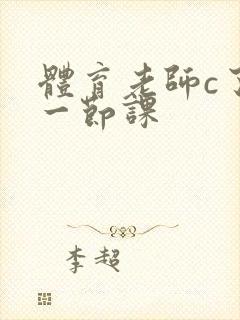 體育老師c了
一節課
李超